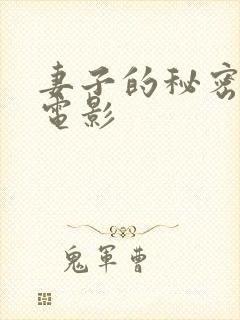 妻子的秘密
電影
鬼軍曹